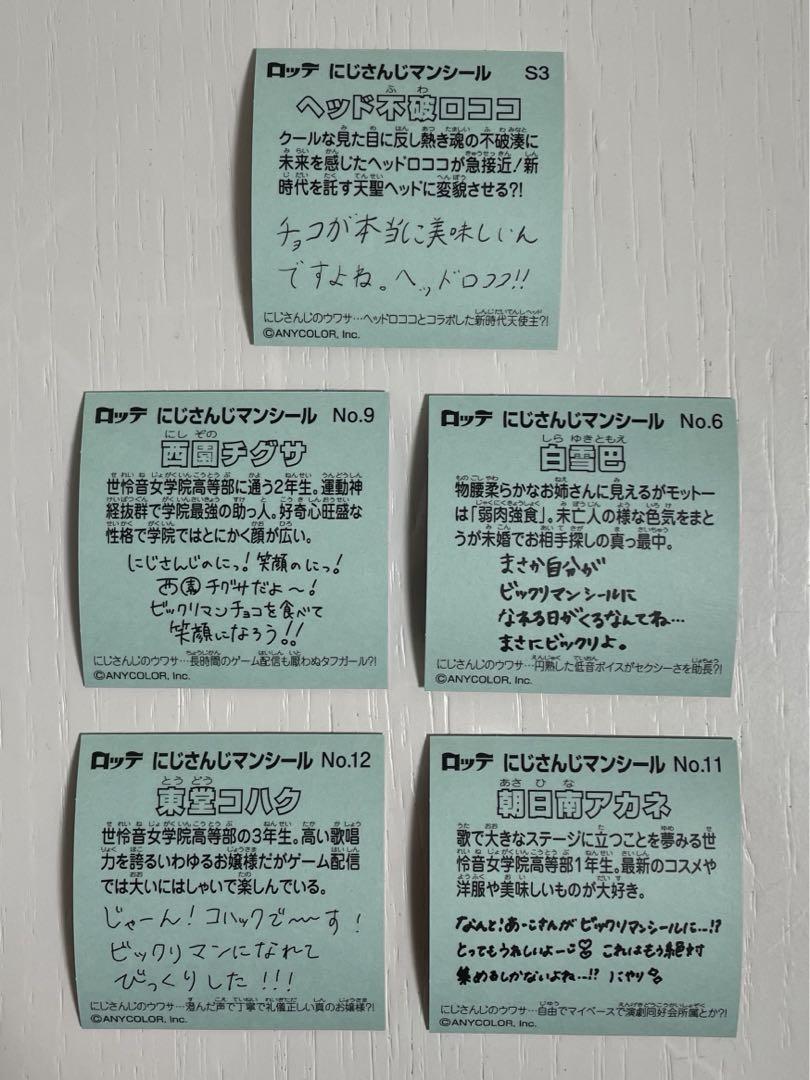 ロッテ にじさんじマンシール S3
ヘッド不破ロココ
クールな見た目に反し熱き魂の不破湊に
未来を感じたヘッドロココが急接近!新
時代を託す天聖ヘッドに変貌させる?!
チョコが本当に美味しいん
ですよね。ヘッドロココ!!
にじさんじのウワサ…ヘッドロココとコラボした新時代天使主?!
©ANYCOLOR, Inc.
ロッテ にじさんじマンシール No.9
西園チグサ
世怜音女学院高等部に通う2年生。運動神
経抜群で学院最強の助っ人。好奇心旺盛な
性格で学院ではとにかく顔が広い。
にじさんじのにっ!笑顔のにっ!
西園チグサだよ〜!
ビックリマンチョコを食べて
笑顔になろう!!
にじさんじのウワサ…長時間のゲーム配信も厭わぬタフガール?!
©ANYCOLOR, Inc.
ロッテ にじさんじマンシール No.6
白雪巴
物腰柔らかなお姉さんに見えるがモットー
は「弱肉強食」。未亡人の様な色気をまと
うが未婚でお相手探しの真っ最中。
まさか自分が
ビックリマンシールに
なれる日がくるなんてね…
まさにビックリよ。
にじさんじのウワサ…円熟した低音ボイスがセクシーさを助長?!
©ANYCOLOR, Inc.
ロッテ にじさんじマンシール No.12
東堂コハク
世怜音女学院高等部の3年生。高い歌唱
力を誇るいわゆるお嬢様だがゲーム配信
では大いにはしゃいで楽しんでいる。
じゃーん!コハックで〜〜す!
ビックリマンになれて
びっくりした!!!
にじさんじのウワサ…澄んだ声で丁寧で礼儀正しい真のお嬢様?!
©ANYCOLOR, Inc.
ロッテ にじさんじマンシール No.11
朝日南アカネ
歌で大きなステージに立つことを夢みる世
怜音女学院高等部1年生。最新のコスメや
洋服や美味しいものが大好き。
なんと!あーさんがビックリマンシールに…!?
とってもうれしいよー これはもう絶対
集めるしかないよね…!?
にじさんじのウワサ…自由でマイペースで演劇同好会所属とか?!
©ANYCOLOR, Inc.